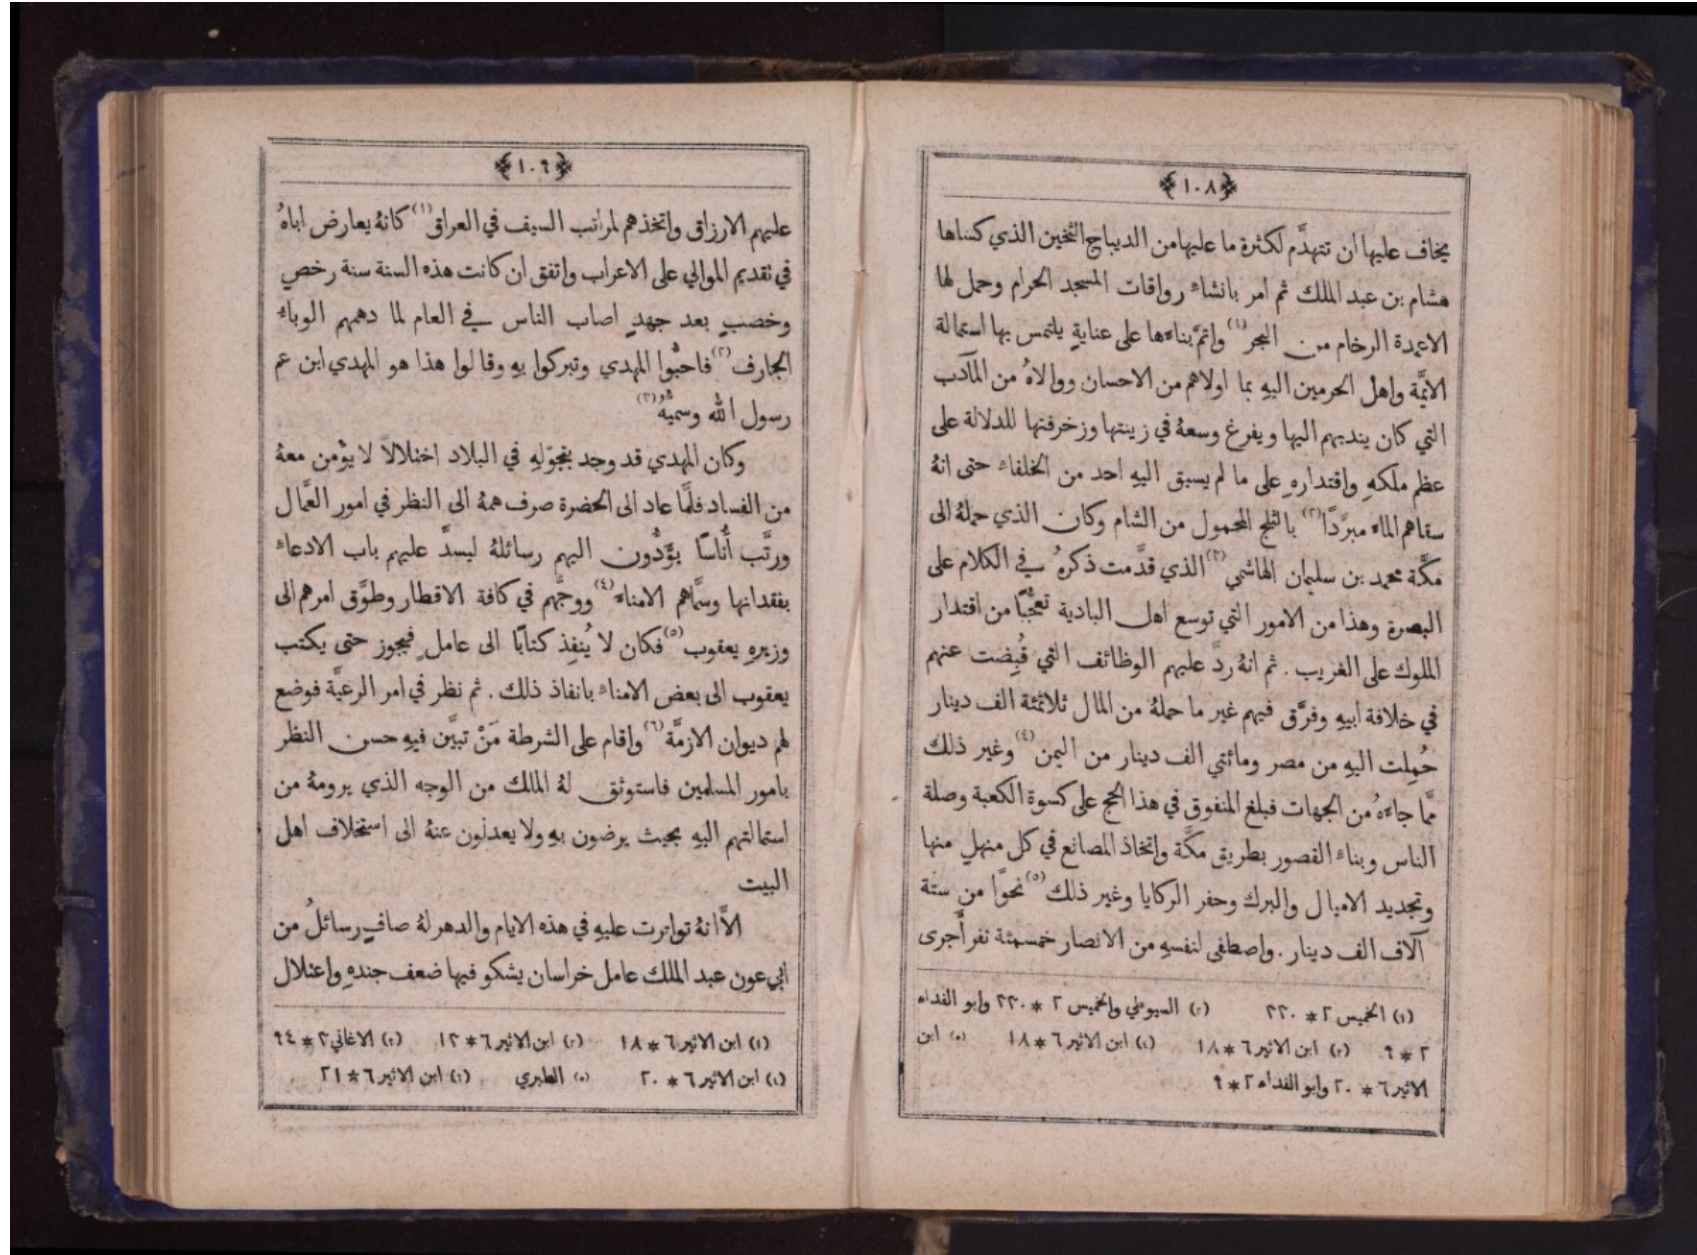 ﴿١٠٨﴾
يخاف عليها ان تتهدَّم لكثرة ما عليها من الديباج الثخين الذي كساها
هشام بن عبد الملك ثم امر بانشاء رواقات المسجد الحرام وحمل لها
الاعمدة الرخام من البحر (١) واتمَّ بناءها على عنايةٍ يلتمس بها استمالة
الائمَّة واهل الحرمين اليهِ بما اولاهم من الاحسان ووالاهُ من المآدب
التي كان يندبهم اليها ويفرغ وسعهُ في زينتها وزخرفتها للدلالة على
عظم ملكهِ واقتدارهِ على ما لم يسبق اليهِ احد من الخلفاء حتى انهُ
سقاهم الماء مبرَّدًا (٢) بالثلج المحمول من الشام وكان الذي حملهُ الى
مكَّة محمد بن سليمان الهاشمي (٣) الذي قدَّمت ذكرهُ في الكلام على
البصرة وهذا من الامور التي توسع اهل البادية تعجُّبًا من اقتدار
الملوك على الغريب . ثم انهُ ردَّ عليهم الوظائف التي قُبِضت عنهم
في خلافة ابيهِ وفرَّق فيهم غير ما حملهُ من المال ثلاثمئة الف دينار
حُمِلت اليهِ من مصر ومائتي الف دينار من اليمن (٤) وغير ذلك
ممَّا جاءهُ من الجهات فبلغ المنفوق في هذا الحج على كسوة الكعبة وصلة
الناس وبناء القصور بطريق مكَّة واتخاذ المصانع في كل منهلٍ منها
وتجديد الاميال والبرك وحفر الركايا وغير ذلك (٥) نحوًا من ستة
آلاف الف دينار . واصطفى لنفسهِ من الانصار خمسمئة نفر أَجرى
(١) الخميس ٢ * ٣٣٠ (٢) السيوطي والخميس ٢ * ٣٣٠ وابو الفداء
٢ * ٩ (٣) ابن الاثير ٦ * ١٨ (٤) ابن الاثير ٦ * ١٨ (٥) ابن
الاثير ٦ * ٢٠ وابو الفداء ٢ * ٩
﴿١٠٩﴾
عليهم الارزاق واتخذهم لمراتب السيف في العراق (١) كانهُ يعارض اباهُ
في تقديم الموالي على الاعراب واتفق ان كانت هذه السنة سنة رخصٍ
وخصبٍ بعد جهدٍ اصاب الناس في العام لما دهمهم الوباء
الجارف (٢) فاحبُّوا المهدي وتبركوا بهِ وقالوا هذا هو المهدي ابن عم
رسول الله وسميُّهُ (٣)
وكان المهدي قد وجد بتجوّلهِ في البلاد اختلالاً لا يؤمن معهُ
من الفساد فلمَّا عاد الى الحضرة صرف همهُ الى النظر في امور العمَّال
ورتَّب أُناسًا يؤَدُّون اليهم رسائلهُ ليسدَّ عليهم باب الادعاء
بفقدانها وسمَّاهم الامناء (٤) ووجَّههم في كافة الاقطار وطوَّق امرهم الى
وزيرهِ يعقوب (٥) فكان لا يُنفِذ كتابًا الى عاملٍ فيجوز حتى يكتب
يعقوب الى بعض الامناء بانفاذ ذلك . ثم نظر في امر الرعيَّة فوضع
لهم ديوان الازمَّة (٦) واقام على الشرطة مَنْ تبيَّن فيهِ حسن النظر
بامور المسلمين فاستوثق لهُ الملك من الوجه الذي يرومهُ من
استمالتهم اليهِ بحيث يرضون بهِ ولا يعدلون عنهُ الى استخلاف اهل
البيت
الاَّ انهُ تواترت عليهِ في هذه الايام والدهر لهُ صافٍ رسائلُ من
ابي عون عبد الملك عامل خراسان يشكو فيها ضعف جندهِ واعتلال
(١) ابن الاثير ٦ * ١٨ (٢) ابن الاثير ٦ * ١٢ (٣) الاغاني ٣ * ٩٤
(٤) ابن الاثير ٦ * ٢٠ (٥) الطبري (٦) ابن الاثير ٦ * ٢١